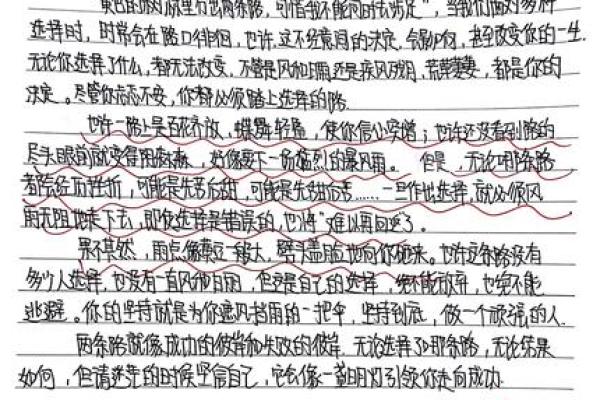 "黄色的树林里分出两条路，可惜我不能同时去涉足"，当我们面对多种
选择时，时常会在路口徘徊，也许，这不经意间的决定，会影响，甚至改变你的一生.
无论你选择了什么，都无法改变，不管是风和日丽还是疾风残月，荒草萋萋，都是你的
决定。尽管你忐忑不安，你都必须踏上选择的路.
也许一路上是百花齐放，蝶舞轻盈，使你信心倍增；也许还没看到路的
尽头眼前就变得阴森森，好像要下一场猛烈的暴风雨。但是，无论哪条路
都会经历挫折，可能是先苦后甜，可能是先甜后苦……一旦作出选择，就必须风
雨无阻地来下去，即使选择是错误的，也将"难以再回返了。
果不其然，雨点像豆一般大，劈头盖脸地向你砸来。也许这条路没有
多少人选择，也没有一直风和日丽，但这是自己的选择，绝不能放弃，也绝不能
逃避。你的坚持就是为你遮风挡雨的一把伞，坚持到底，做一个顽强的人.
两条路就像成功的彼岸和失败的彼岸.无论选择了哪条路，无论结果
如何，但请迷茫的时候坚信自己，它会像一盏明灯引领你走向成功.